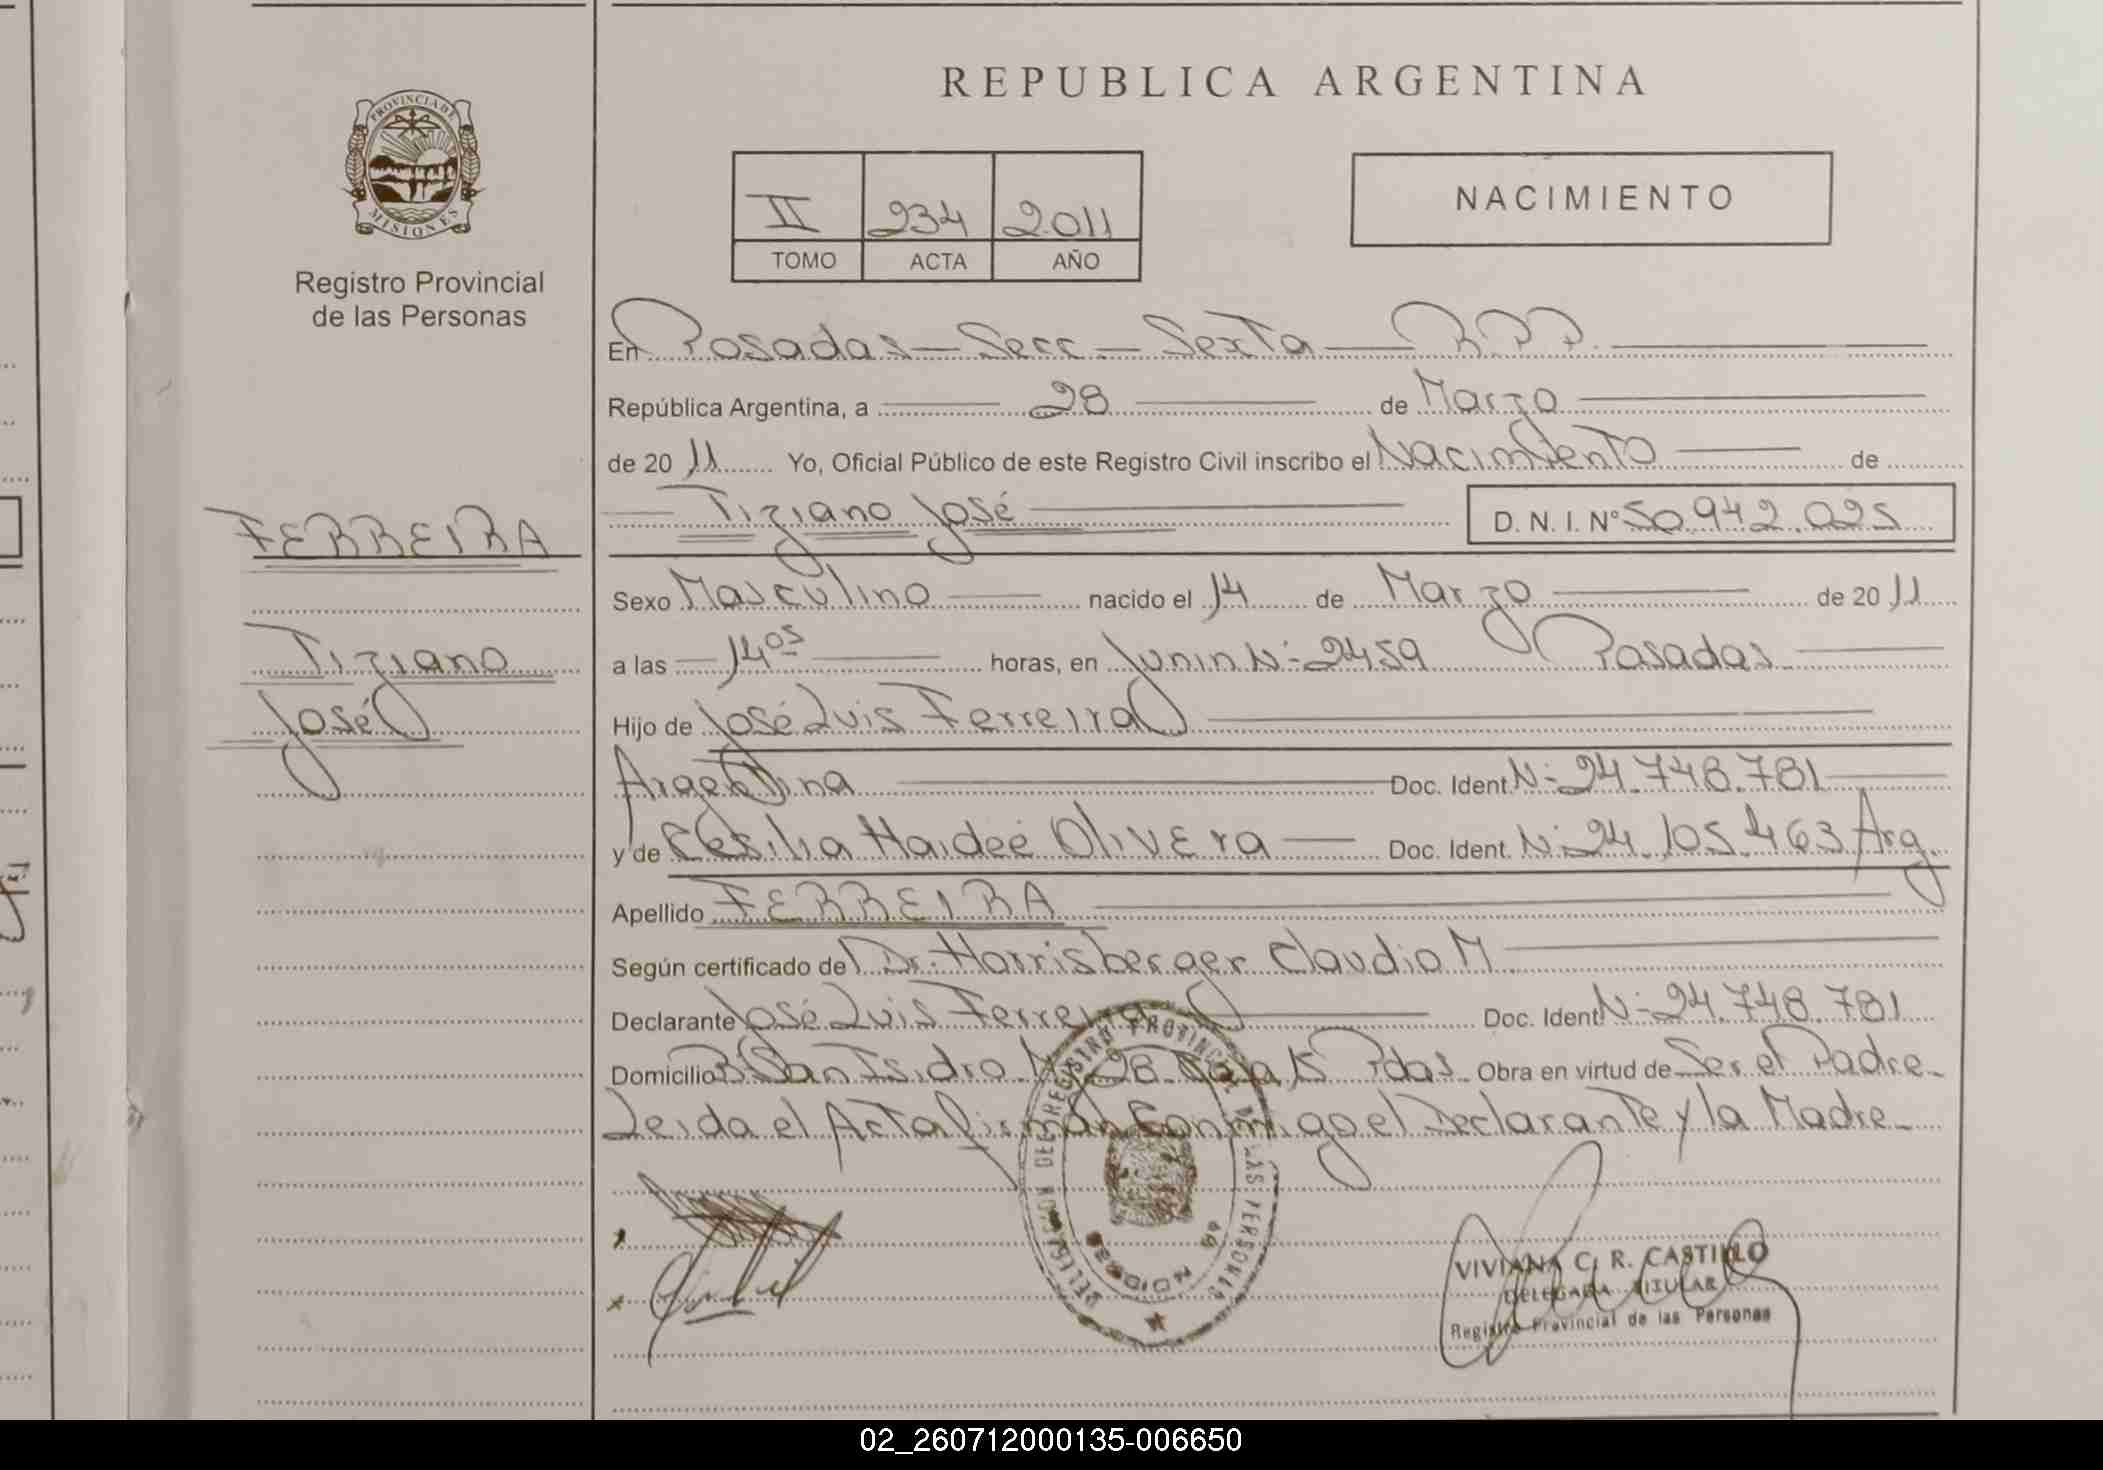 REPUBLICA ARGENTINA
PROVINCIA DE MISIONES
Registro Provincial
de las Personas
II 234 2011
TOMO ACTA AÑO
NACIMIENTO
En Posadas - Secc - Sexta - R.P.P.
República Argentina, a 28 de Marzo
de 20 11 Yo, Oficial Público de este Registro Civil inscribo el Nacimiento de
Tiziano José D. N. I. Nº 50.942.025
FERREIRA
Sexo Masculino nacido el 14 de Marzo de 20 11
Tiziano
a las 14 05 horas, en Junin Nº 2459 Posadas
José
Hijo de José Luis Ferreira
Argentina Doc. Ident. Nº 24.748.781
y de Cesilia Haideé Olivera Doc. Ident. Nº 24.105.463 Arg.
Apellido FERREIRA
Según certificado de Dr. Harrisberger Claudio M
Declarante José Luis Ferreira Doc. Ident. Nº 24.748.781
Domicilio Bº San Isidro 28 Casa 15 Pdas. Obra en virtud de Ser el Padre
Leida el Acta firman Conmigo el Declarante y la Madre
DELEGACION DEL REGISTRO PROVINCIAL DE LAS PERSONAS
VIVIANA C. R. CASTILLO
DELEGADA TITULAR
Registro Provincial de las Personas
02_260712000135-006650